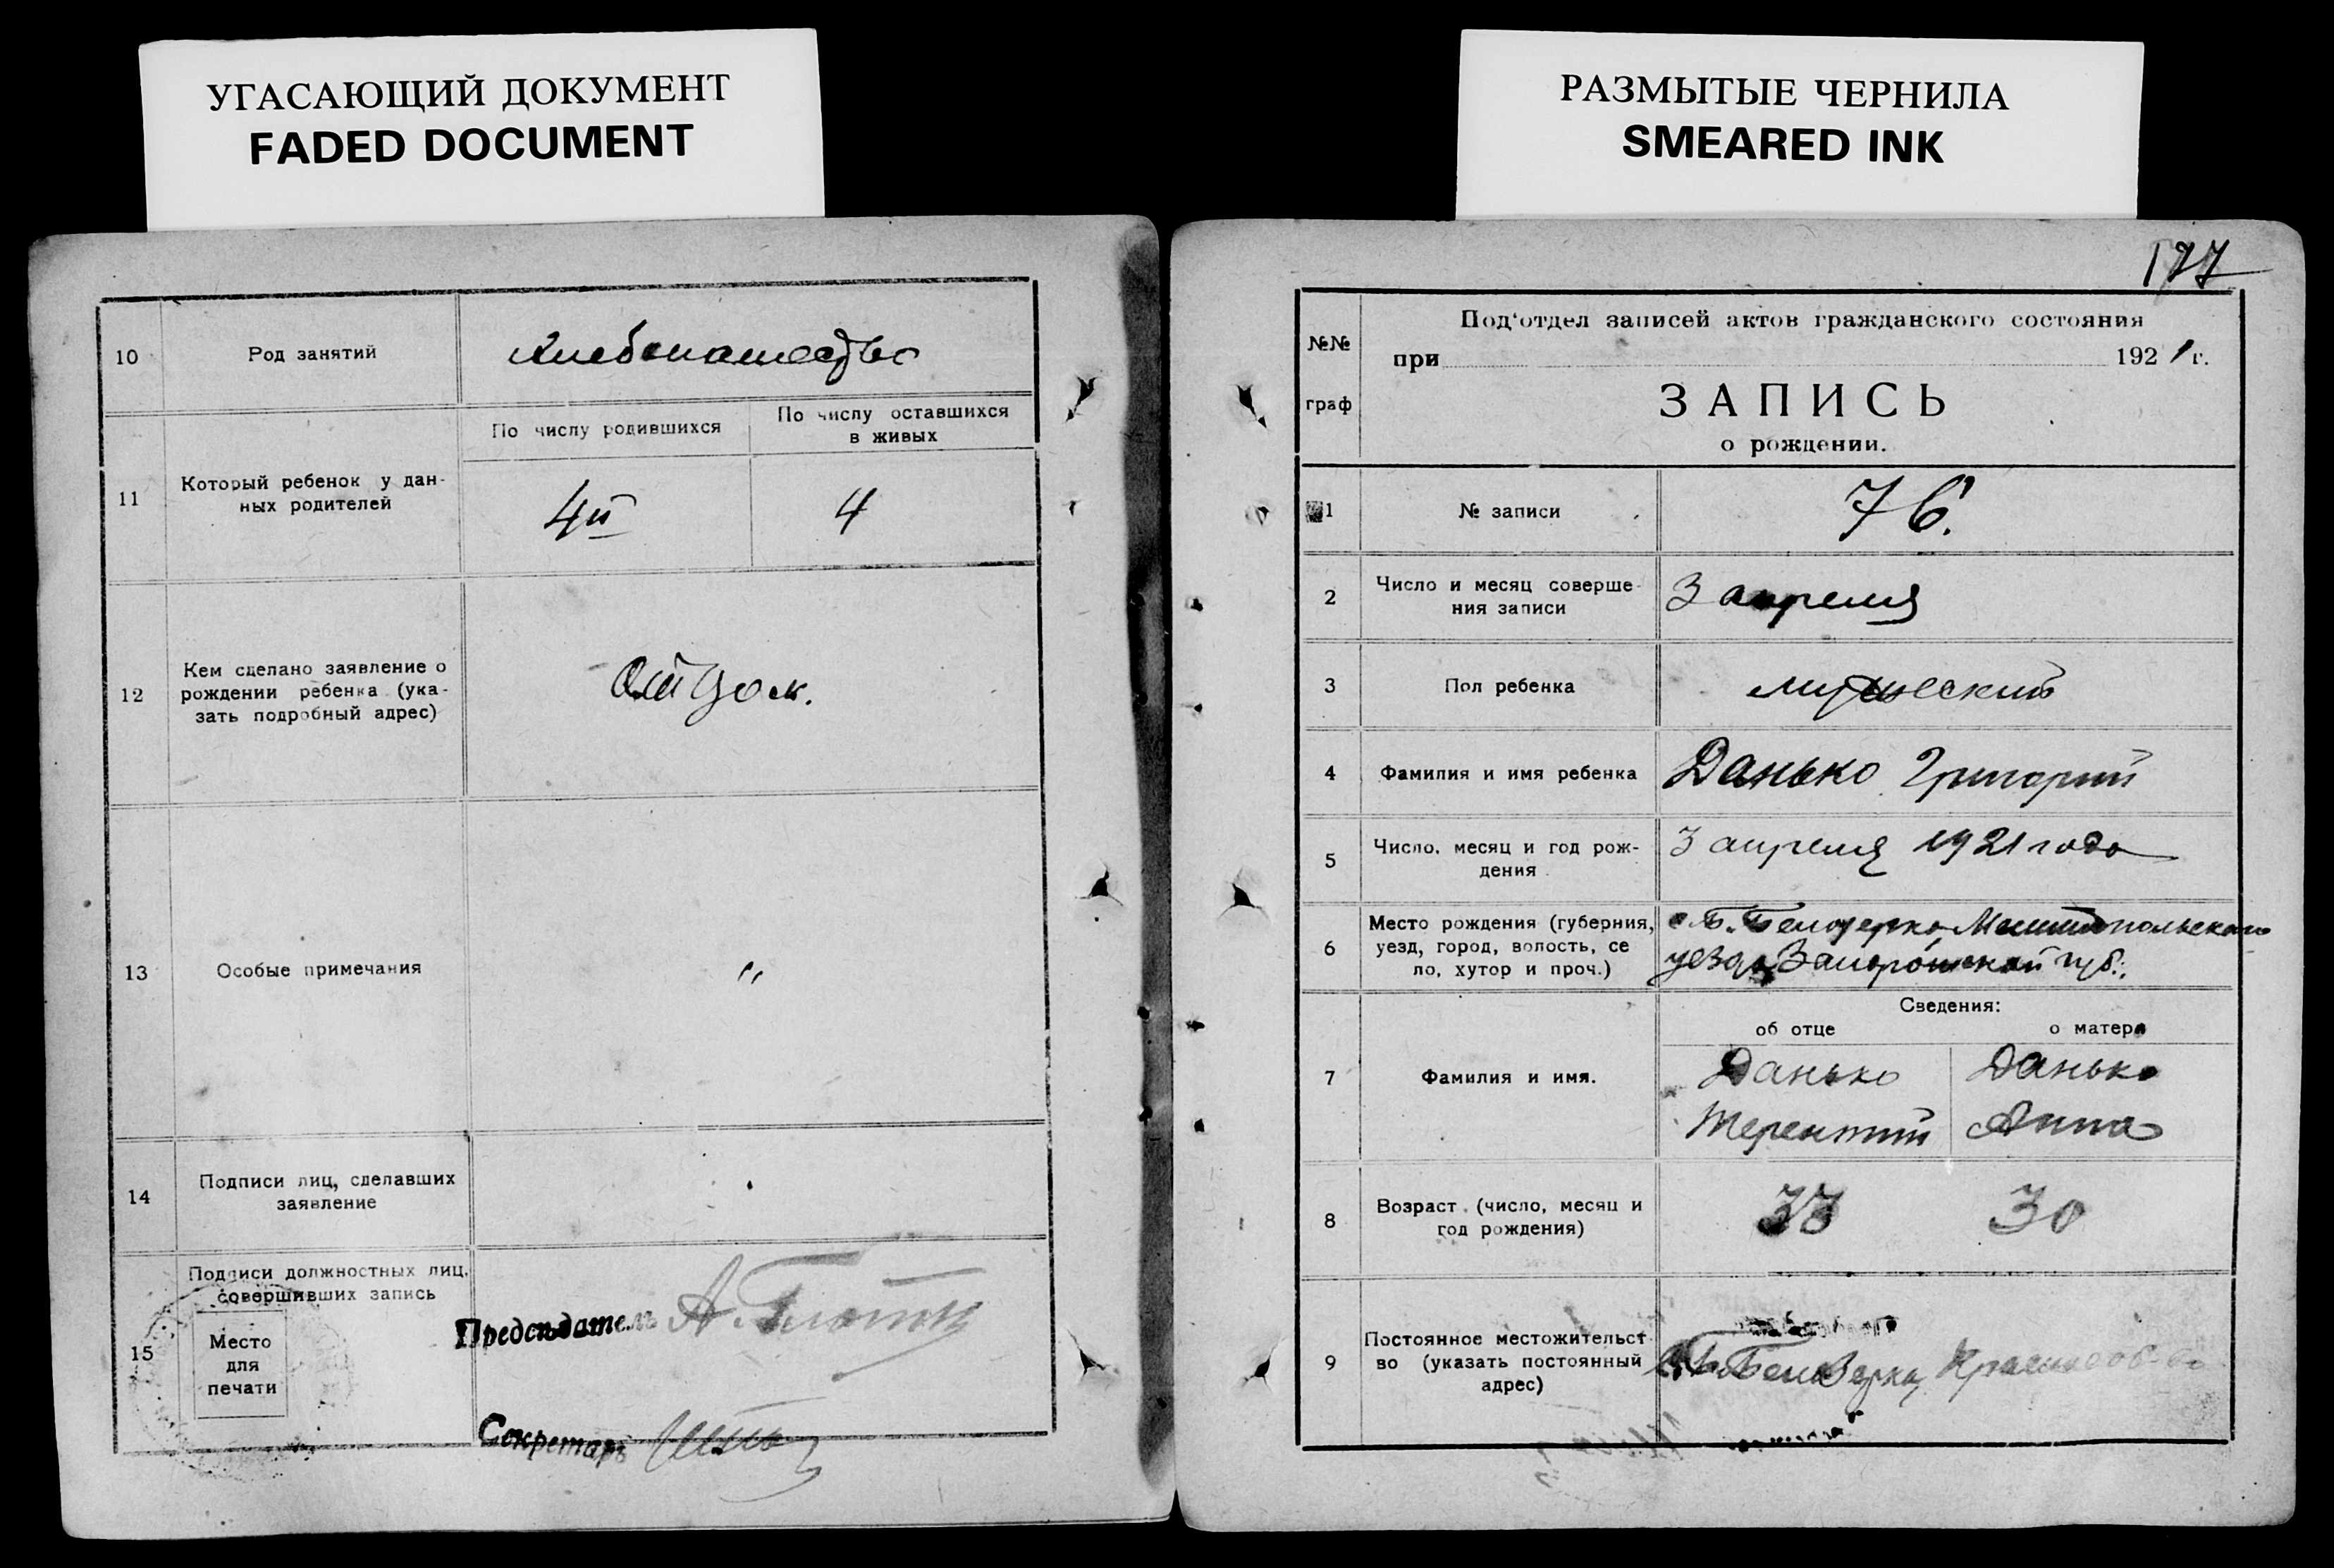 УГАСАЮЩИЙ ДОКУМЕНТ
FADED DOCUMENT
РАЗМЫТЫЕ ЧЕРНИЛА
SMEARED INK
10
Род занятий
Хлебопашество
11
Который ребенок у дан-
ных родителей
По числу родившихся
4й
По числу оставшихся
в живых
4
12
Кем сделано заявление о
рождении ребенка (ука-
зать подробный адрес)
Отцом.
13
Особые примечания
"
14
Подписи лиц, сделавших
заявление
15
Подписи должностных лиц,
совершивших запись
Место
для
печати
Председатель А.
Секретарь
177
№№
граф
Под'отдел записей актов гражданского состояния
при 1921 г.
ЗАПИСЬ
о рождении.
1
№ записи
76.
2
Число и месяц соверше-
ния записи
3 апреля
3
Пол ребенка
мужеский
4
Фамилия и имя ребенка
Данько Григорий
5
Число, месяц и год рож-
дения
3 апреля 1921 года
6
Место рождения (губерния,
уезд, город, волость, се
ло, хутор и проч.)
с Б. Белозерка Мелитопольского
уезда Запорожской губ.
Сведения:
об отце
о матери
7
Фамилия и имя.
Данько
Терентий
Данько
Анна
8
Возраст (число, месяц и
год рождения)
33
30
9
Постоянное местожительст
во (указать постоянный
адрес)
с. Б. Белозерка